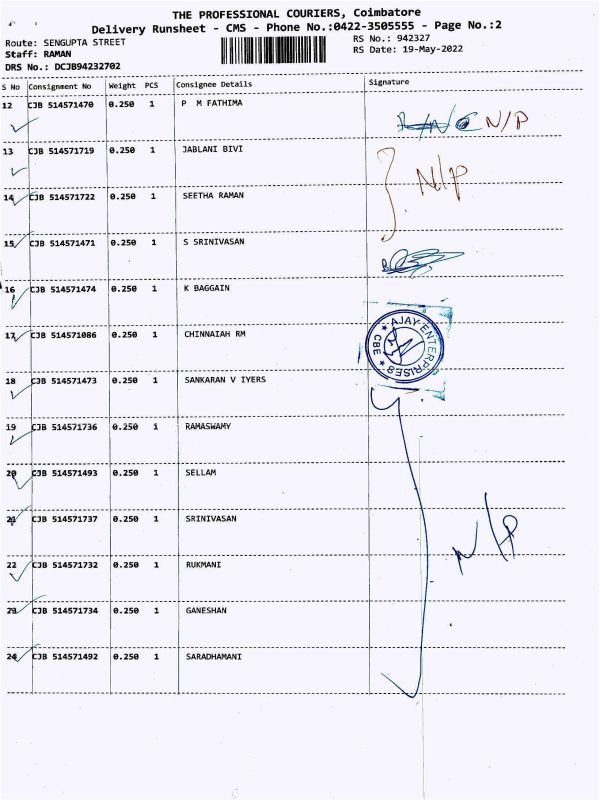 THE PROFESSIONAL COURIERS, Coimbatore
Delivery Runsheet - CMS - Phone No.:0422-3505555 - Page No.:2
Route: SENGUPTA STREET
RS No.: 942327
Staff: RAMAN
RS Date: 19-May-2022
DRS No.: DCJB94232702
S No Consignment No Weight PCS Consignee Details Signature
12 CJB 514571470 0.250 1 P M FATHIMA
N/P
13 CJB 514571719 0.250 1 JABLANI BIVI
N/P
14 CJB 514571722 0.250 1 SEETHA RAMAN
15 CJB 514571471 0.250 1 S SRINIVASAN
16 CJB 514571474 0.250 1 K BAGGAIN
17 CJB 514571086 0.250 1 CHINNAIAH RM
AJAY ENTERPRISES ★ CBE ★
18 CJB 514571473 0.250 1 SANKARAN V IYERS
19 CJB 514571736 0.250 1 RAMASWAMY
20 CJB 514571493 0.250 1 SELLAM
21 CJB 514571737 0.250 1 SRINIVASAN
N/P
22 CJB 514571732 0.250 1 RUKMANI
23 CJB 514571734 0.250 1 GANESHAN
24 CJB 514571492 0.250 1 SARADHAMANI